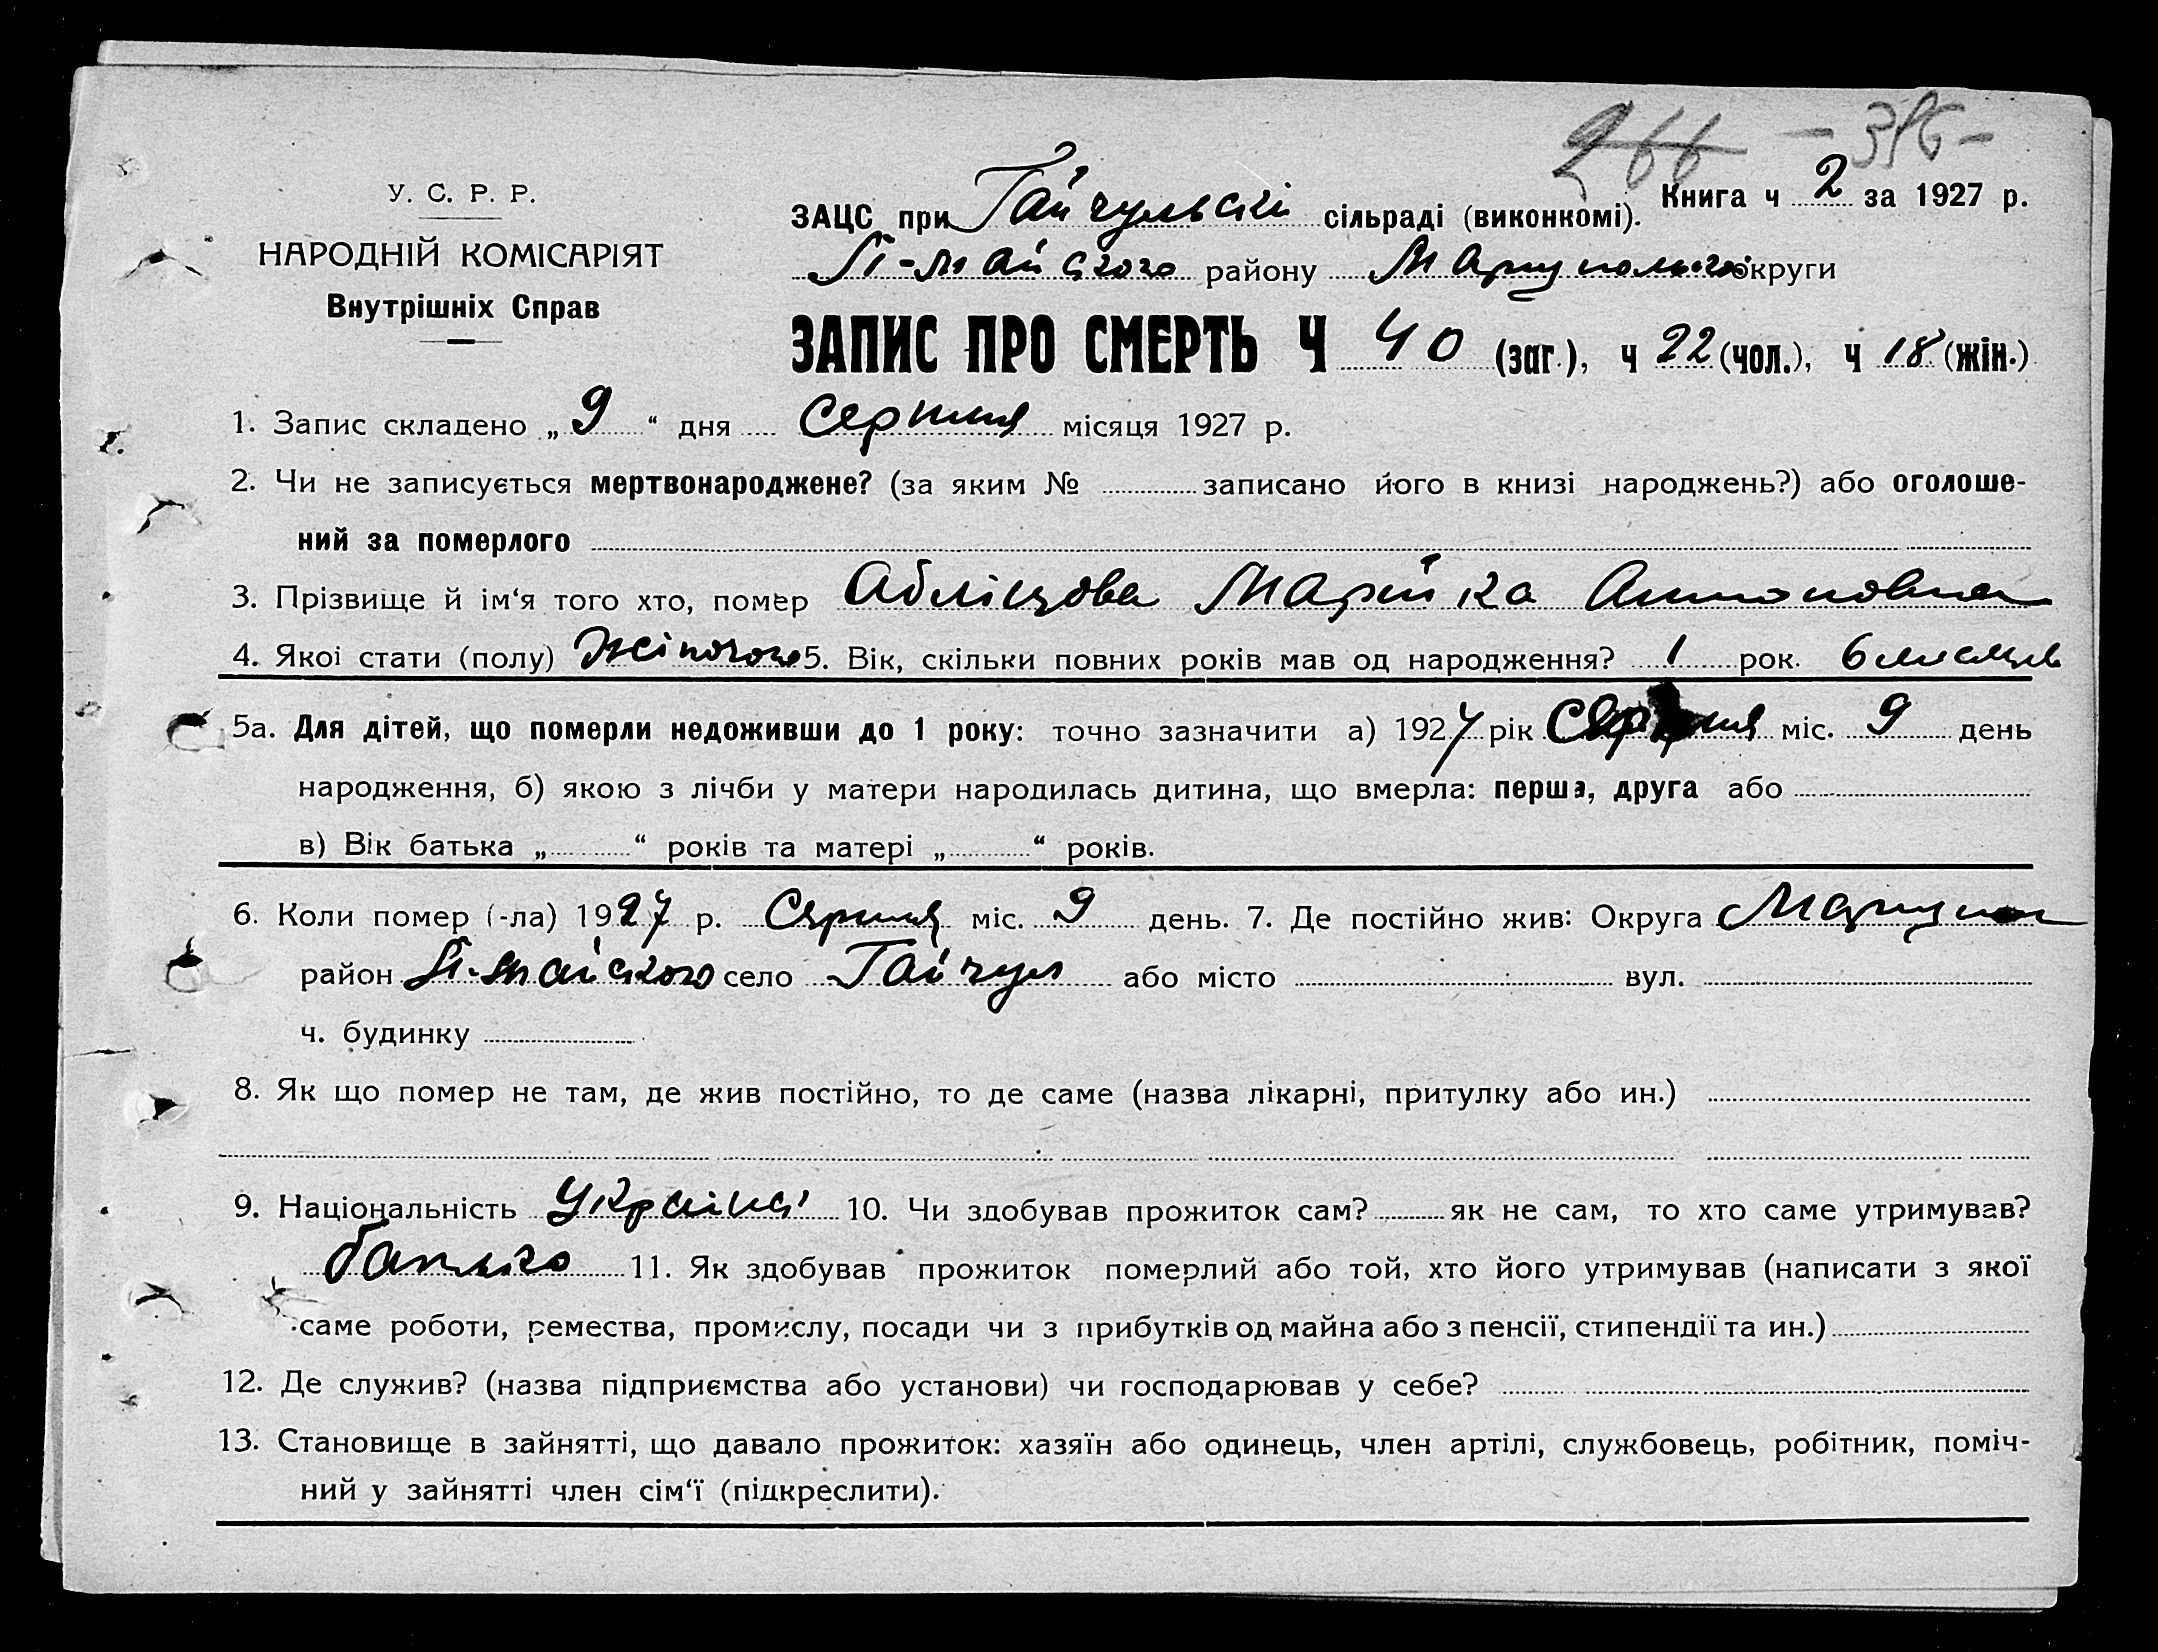 266 - 376 -
У. С. Р. Р.
НАРОДНІЙ КОМІСАРІЯТ
Внутрішніх Справ
ЗАЦС при Гайчульскі сільраді (виконкомі). Книга ч 2 за 1927 р.
П-майского району Маріупольского округи
ЗАПИС ПРО СМЕРТЬ Ч 40 (заг.), ч 22 (чол.), ч 18 (жін.)
1. Запис складено „ 9 “ дня Серпня місяця 1927 р.
2. Чи не записується мертвонароджене? (за яким № записано його в книзі народжень?) або оголоше-
ний за померлого
3. Прізвище й ім‘я того хто, помер Абліцова Марійка Антоновна
4. Якоі стати (полу) Жіночого 5. Вік, скільки повних років мав од народження? 1 рок. 6 месяців
5а. Для дітей, що померли недоживши до 1 року: точно зазначити а) 1927 рік Серпня міс. 9 день
народження, б) якою з лічби у матери народилась дитина, що вмерла: перша, друга або
в) Вік батька „ “ років та матері „ “ років.
6. Коли помер (-ла) 1927 р. Серпня міс. 9 день. 7. Де постійно жив: Округа Маріупол
район П-майского село Гайчул або місто вул.
ч. будинку
8. Як що помер не там, де жив постійно, то де саме (назва лікарні, притулку або ин.)
9. Національність Україна 10. Чи здобував прожиток сам? як не сам, то хто саме утримував?
батько 11. Як здобував прожиток померлий або той, хто його утримував (написати з якої
саме роботи, ремества, промислу, посади чи з прибутків од майна або з пенсії, стипендії та ин.)
12. Де служив? (назва підприємства або установи) чи господарював у себе?
13. Становище в зайнятті, що давало прожиток: хазяїн або одинець, член артілі, службовець, робітник, поміч-
ний у зайнятті член сім‘ї (підкреслити).